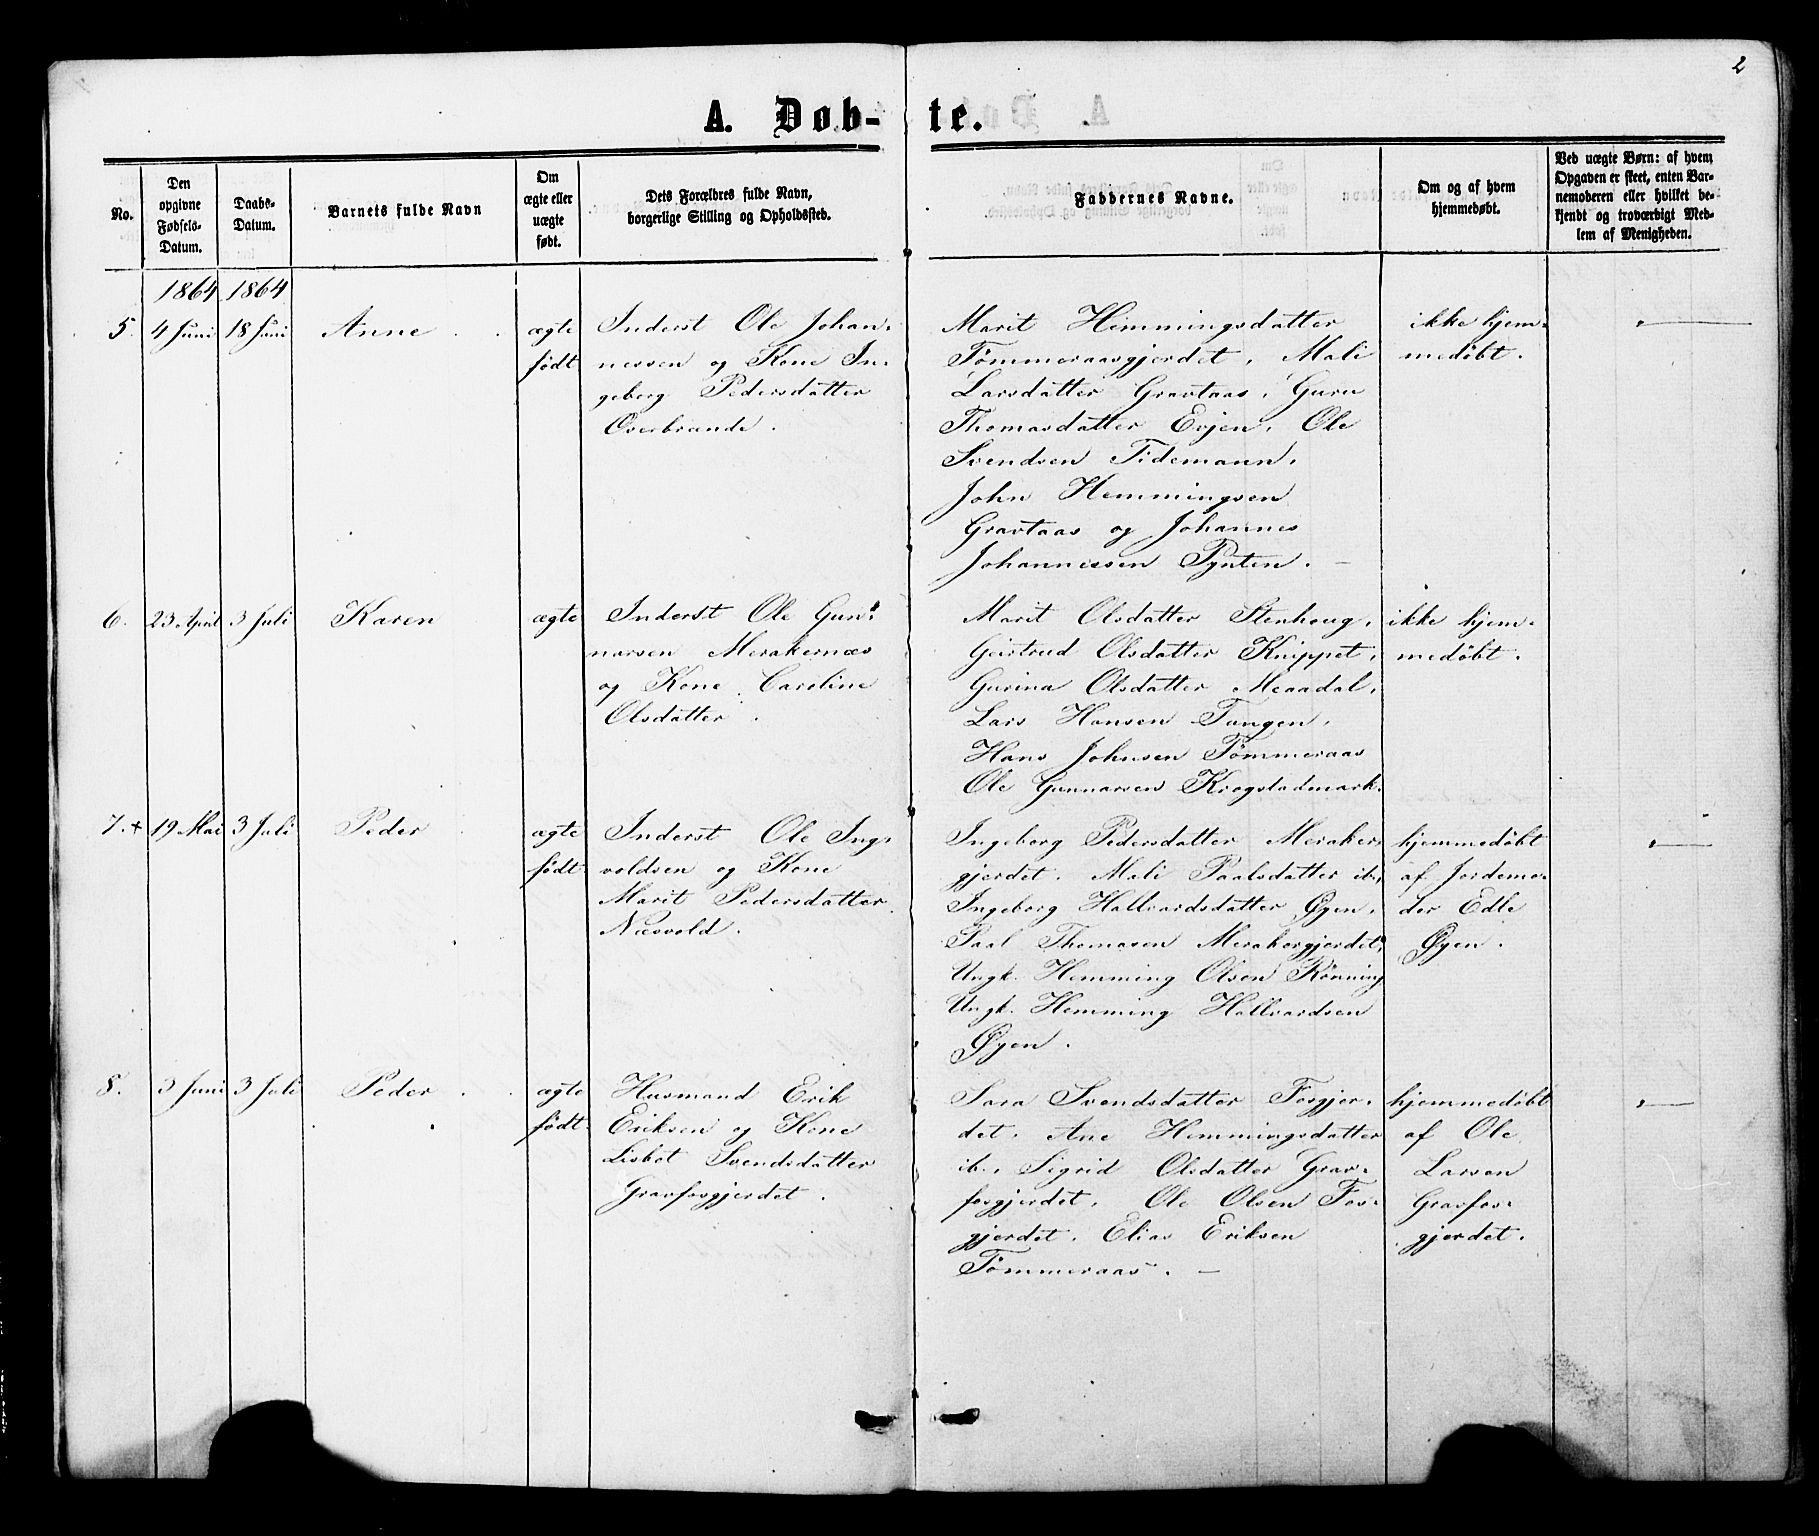 2
A. Døb- te.
No.
Den opgivne Fødsels-Datum.
Daabs-Datum.
Barnets fulde Navn
Om ægte eller uægte født.
Dets Forældres fulde Navn, borgerlige Stilling og Opholdssted.
Faddernes Navne.
Om og af hvem hjemmedøbt.
Ved uægte Børn: af hvem Opgaven er skeet, enten Barnemoderen eller hvilket bekjendt og troværdigt Medlem af Menigheden.
1864 1864
5. 4 Juni 18 Juni Anne
ægte
født
Inderst Ole Johan-
nessen og Kone In-
geborg Pedersdatter
Overbrænde.
Marit Hemmingsdatter
Tømmeraasgjerdet, Mali
Larsdatter Gravtaas, Guru
Thomasdatter Evjen, Ole
Svendsen Tidemann,
John Hemmingsen
Gravtaas og Johannes
Johannessen Pynten. —
ikke hjem-
medøbt.
6. 23 April 3 Juli Karen
ægte
Inderst Ole Gun-
narsen Merakernæs
og Kone Caroline
Olsdatter.
Marit Olsdatter Stenhoug,
Geirtrud Olsdatter Knippet,
Gurina Olsdatter Meaadal,
Lars Hansen Tangen,
Hans Johnsen Tømmeraas
Ole Gunnarsen Krogstadmark.
ikke hjem-
medøbt.
7. + 19 Mai 3 Juli Peder
ægte
født
Inderst Ole Ing-
voldsen og Kone
Marit Pedersdatter
Næsvold.
Ingeborg Pedersdatter Meraker-
gjerdet, Mali Paalsdatter ib.,
Ingeborg Hallvardsdatter Øyen,
Paal Thomasen Merakergjerdet,
Ungk. Hemming Olsen Rønning
Ungk. Hemming Hallvardsen
Øyen.
hjemmedøbt
af Jordemo-
der Edle
Øyen.
8. 3 Juni 3 Juli Peder
ægte
født
Husmand Erik
Eriksen og Kone
Lisbet Svendsdatter
Gravfosgjerdet.
Sara Svendsdatter Fosgjer-
det, Ane Hemmingsdatter
ib., Sigrid Olsdatter Grav-
fosgjerdet, Ole Olsen Fos-
gjerdet, Elias Eriksen
Tømmeraas. —
hjemmedøbt
af Ole
Larsen
Gravfos-
gjerdet.